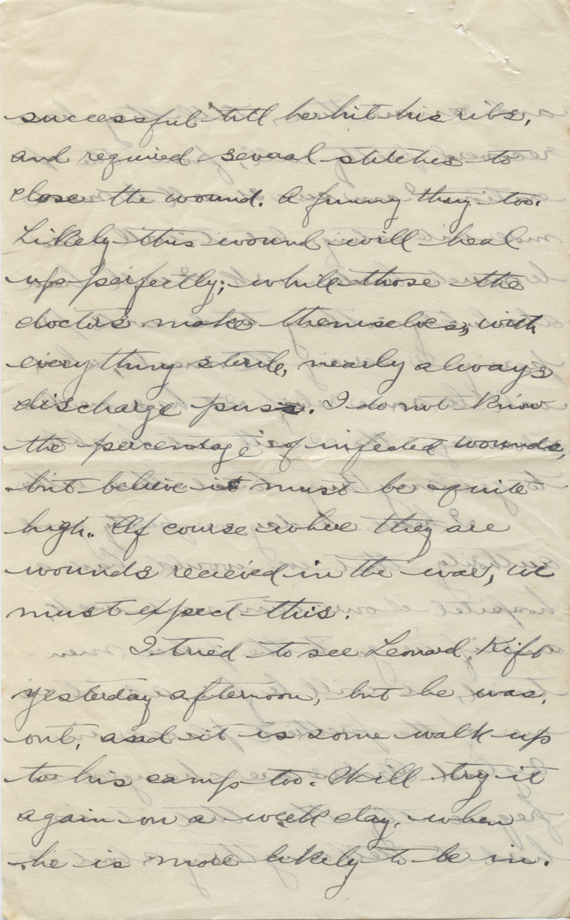 successful till he hit his ribs,
and required several stitches to
close the wound. A funny thing too.
Likely this wound will heal
up perfectly; while those the
doctors make themselves, with
everything sterile, nearly always
discharge puss. I do not know
the percentage of infected wounds,
but believe it must be quite
high. Of course where they are
wounds recieved in the war, we
must expect this.
I tried to see Leonard Kift
yesterday afternoon, but he was
out, and it is some walk up
to his camp too. Will try it
again on a week day, when
he is more likely to be in.